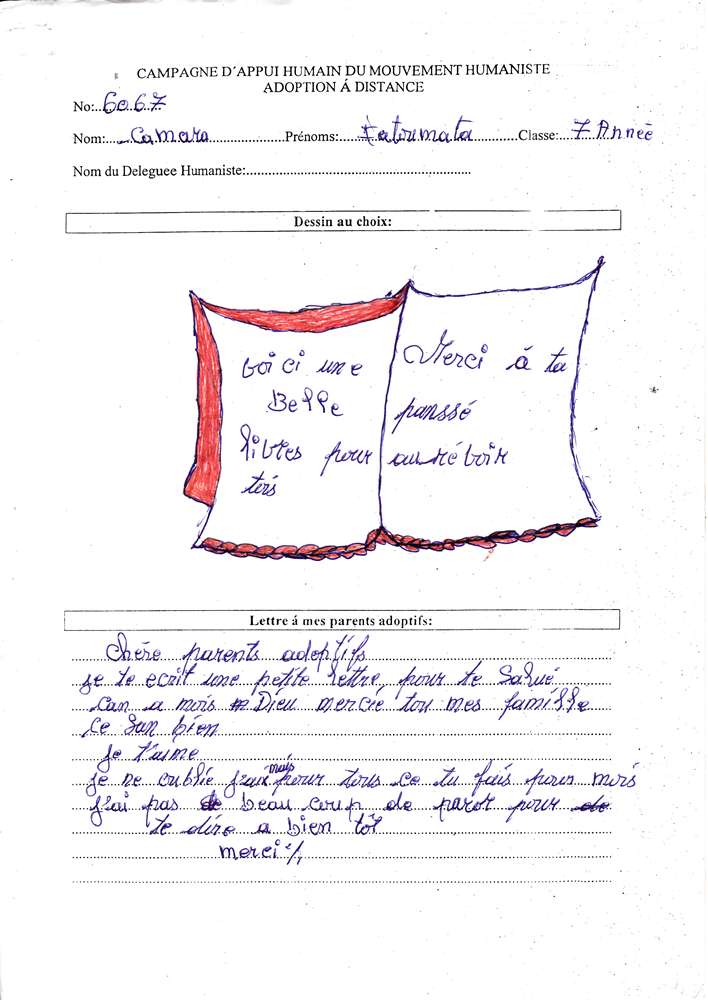 CAMPAGNE D'APPUI HUMAIN DU MOUVEMENT HUMANISTE
ADOPTION Á DISTANCE
No:..6067
Nom:....Camara....Prénoms:....Fatoumata....Classe:....7 Année
Nom du Deleguee Humaniste:....
Dessin au choix:
Voici une
Belle
livres pour
tois
Merci á ta
panssé
au révoir
Lettre á mes parents adoptifs:
Chère parents adoptifs
je te ecrit une petite lettre, pour te Salué
can a mois Dieu mercie tou mes famille
ce San bien
je t'aime
je ne oublie j'rai mais pour tous ce tu fais pour mois
j'ai pas de beau coup de parot pour de
te dire a bien tôt
merci %